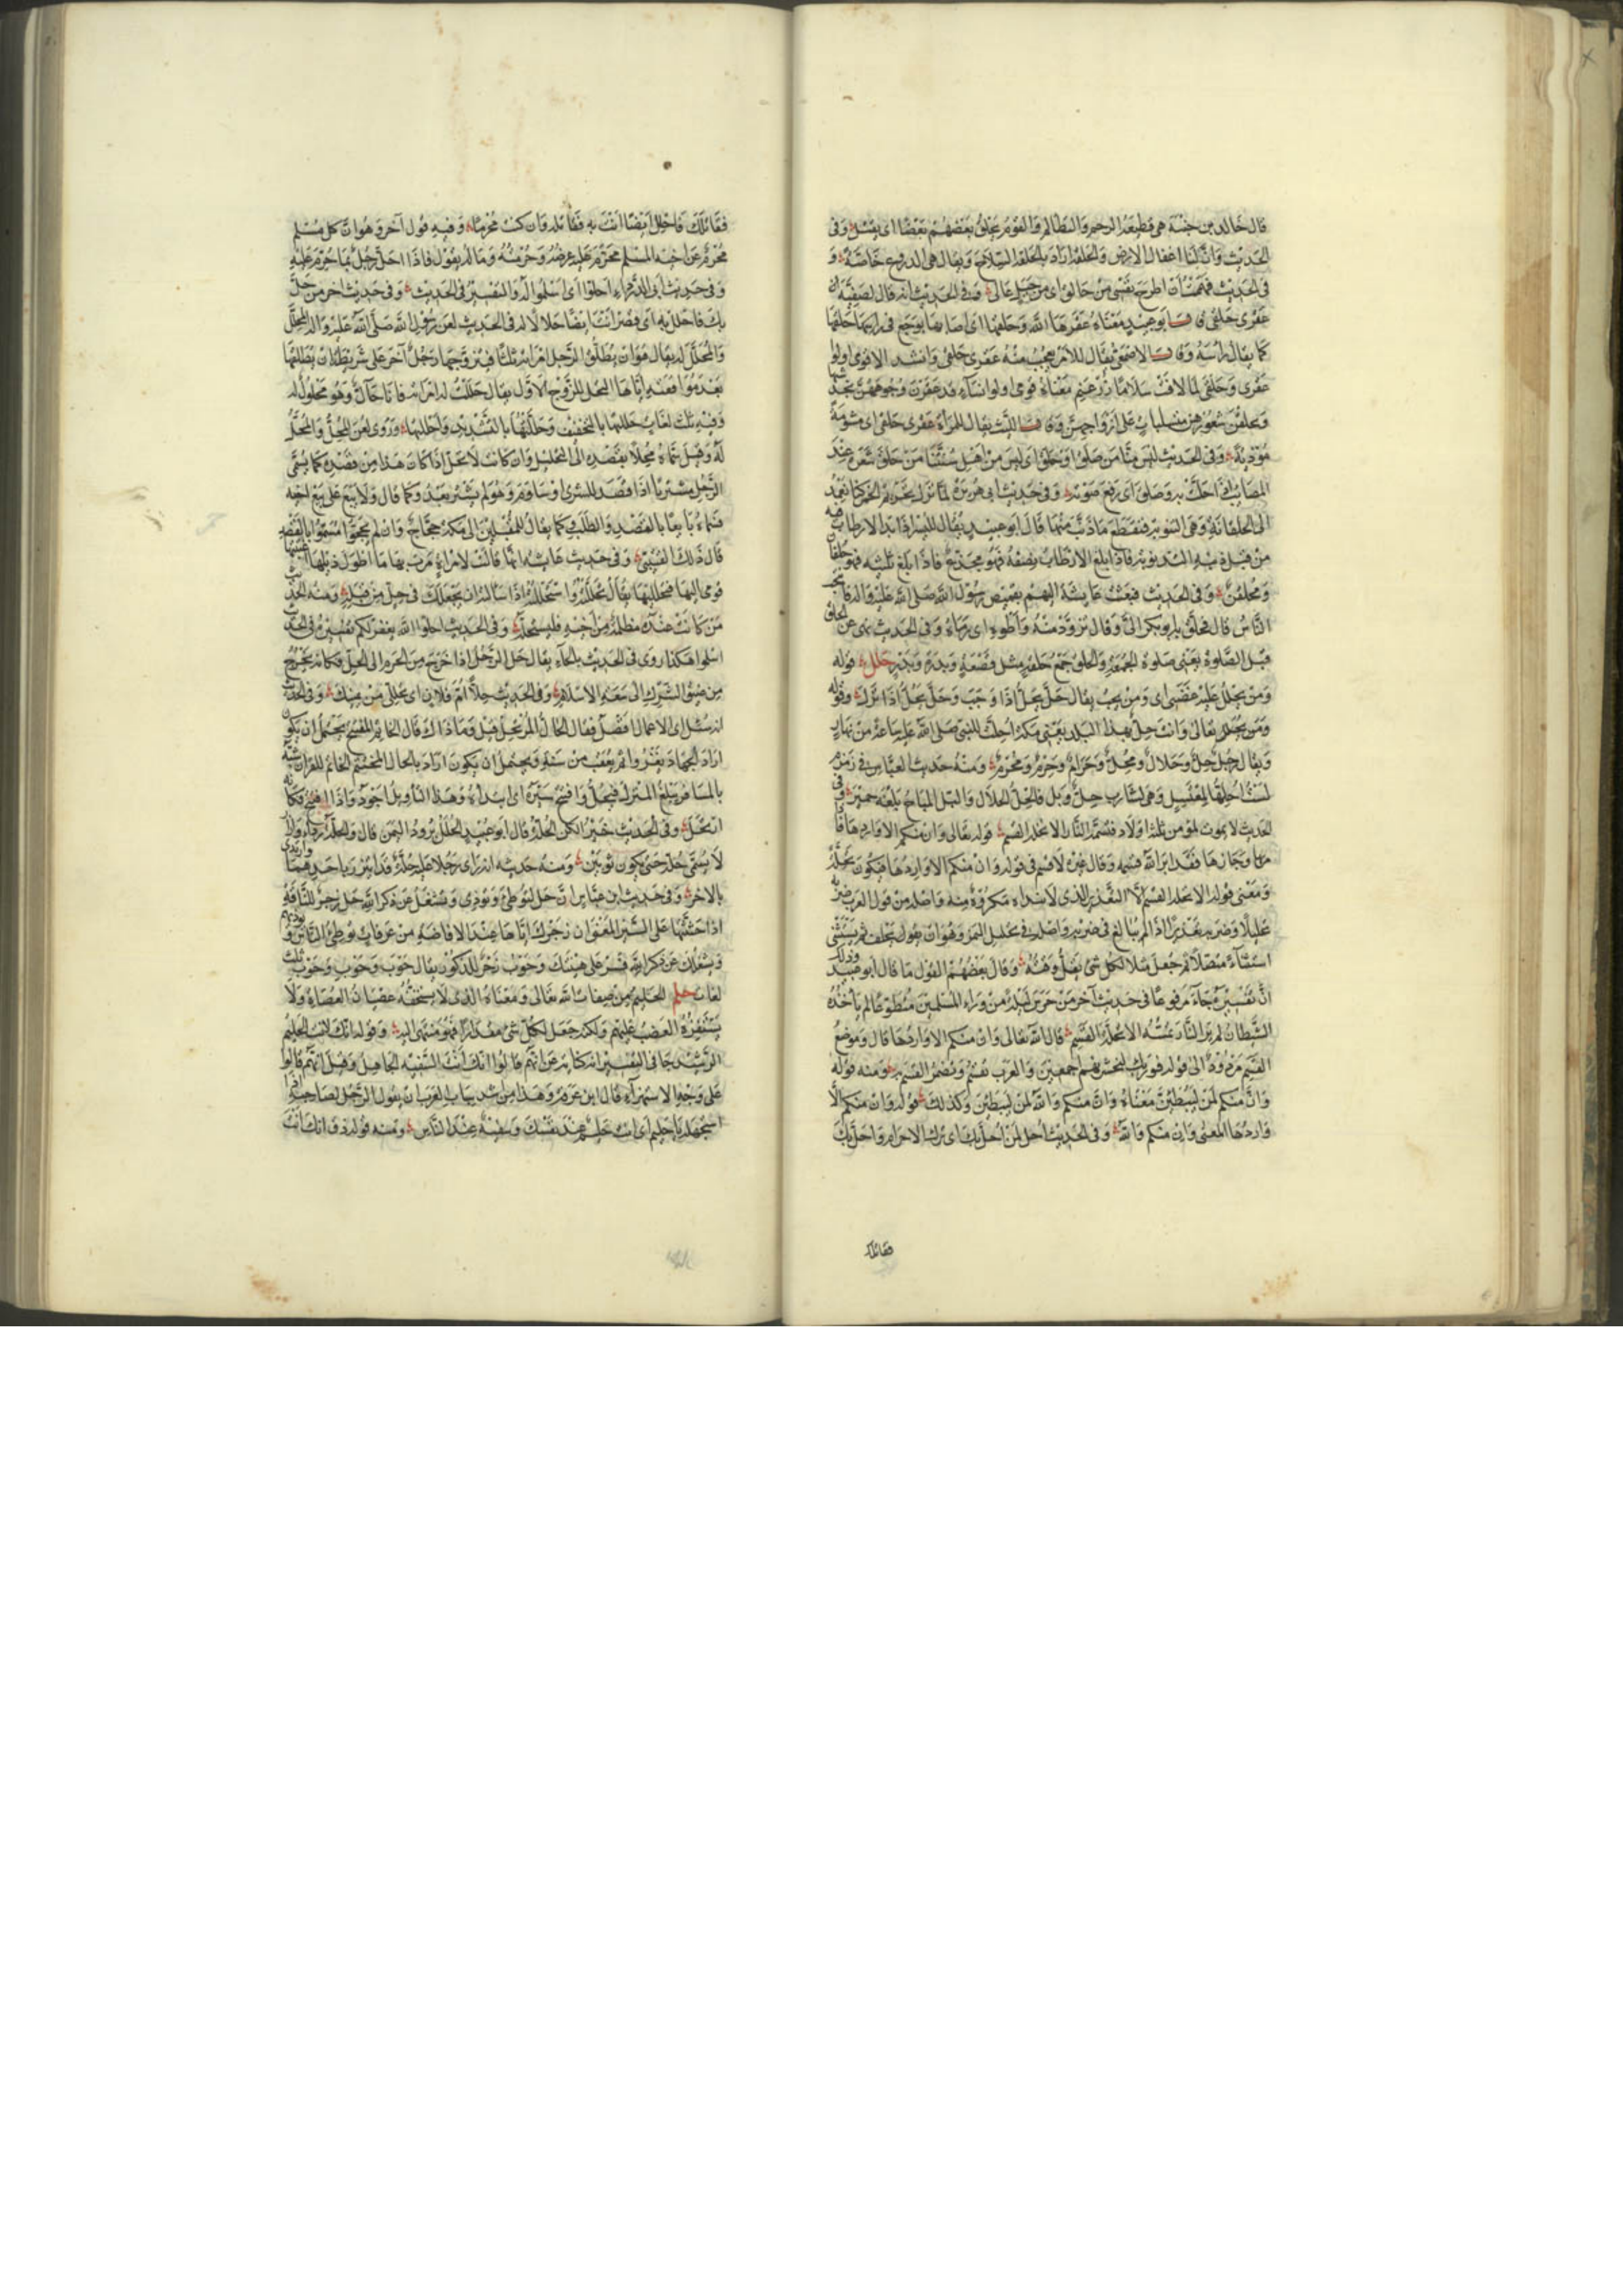 قال خالد بن جنبة هي قطيعة الرحم والتظالم والقوم يحلق بعضهم بعضا اي يقتل وفي
الحديث وان لنا اغفال الارض والحلقة اراد بالحلقة السلاح ويقال هي الدروع خاصة و
في الحديث فهممت ان اطرح نفسي من حالق اي من جبل عال وفي الحديث انه قال لصفية
عقرى حلقى قال ابو عبيد معناه عقرها الله وحلقها اي اصابها بوجع في حلقها
كما يقال رأسه وقال الاصمعي يقال للامر يعجب منه عقرى حلقى وانشد الا قومي اولو
عقرى وحلقى لما لاقت سلامان بن غنم معناه قومي اولو نساء قد عقرن وجوههن
وحلقن شعورهن متسلبات على ازواجهن وقال الليث يقال للمرأة عقرى حلقى اي مشومة
مؤذية وفي الحديث ليس منا من صلق او حلق اي ليس من اهل سنتنا من حلق شعره عند
المصائب اذا حلت به وصلق اي رفع صوته وفي حديث ابي هريرة لما نزل تحريم الخمر كنا نعمد
الى الحلقانة وهي التذنوبة فنقطع ما ذنب منها قال ابو عبيد يقال للبسر اذا بدا الارطاب فيه
من قبل ذنبه التذنوبة فاذا بلغ الارطاب نصفه فهو مجزع فاذا بلغ ثلثيه فهو حلقان
ومحلقن وفي الحديث فبعثت عايشة اليهم بقميص رسول الله صلى الله عليه واله فانتحب
الناس قال فحلق به ابو بكر الي وقال تزود منه واطوه اي رماه وفي الحديث نهى عن الحلق
قبل الصلوة يعني صلوة الجمعة والحلق جمع حلقة مثل قصعة وبدرة وبدر حلل قوله
ومن يحلل عليه غضبي اي ومن يجب يقال حل يحل اذا وجب وحل يحل اذا نزل وقوله
تعالى وانت حل بهذا البلد يعني مكة احلت للنبي صلى الله عليه ساعة من نهار
ويقال رجل حل وحلال ومحل وحرام وحرم ومحرم ومنه حديث العباس في زمزم
لست احلها لمغتسل وهي لشارب حل وبل فالحل الحلال والبل المباح بلغة حمير وفي
الحديث لا يموت لمؤمن ثلثة اولاد فتمسه النار الا تحلة القسم قوله تعالى وان منكم الا واردها فاذا
مر بها وجازها فقد ابر الله قسمه وقال غيره لا قسم في قوله وان منكم الا واردها فيكون تحلة
ومعنى قوله الا تحلة القسم الا التعذير الذي لا يبداه مكروه منه واصله من قول العرب ضربه
تحليلا وضربه تعذيرا اذا لم يبالغ في ضربه واصله في تحليل اليمين وهو ان يقول يحلف ثم يستثني
استثناء متصلا ثم جعل مثلا لكل شئ يقل وقته وقال بعضهم القول ما قال ابو عبيد وذلك
ان تفسيره جاء مرفوعا في حديث آخر من حرس ليلة من وراء المسلمين متطوعا لم يأخذه
الشيطان لم ير النار تمسه الا تحلة القسم قال الله تعالى وان منكم الا واردها قال وموضع
القسم مردود الى قوله فوربك لنحشرنهم اجمعين والعرب تقسم وتضمر القسم به ومنه قوله
وان منكم لمن ليبطئن معناه وان منكم والله لمن ليبطئن وكذلك قوله وان منكم الا
واردها المعنى وان منكم والله وفي الحديث احل لمن احل بك اي ترك الاحرام واحل بك
فقاتلك
فقاتلك فاحلل ايضا انت به فقاتله وان كنت محرما وفيه قول آخر وهو ان كل مسلم
محرم عن اخيه المسلم محرم عليه عرضه وحرمته وماله يقول فاذا احل رجل بما حرم عليه
وفي حديث ابي الدرداء احلوا الله اي اسلموا لله والتفسير في الحديث وفي حديث آخر من حل
بك فاحلل به اي فصر انت ايضا حلالا له في الحديث لعن رسول الله صلى الله عليه واله المحلل
والمحلل له يقال هو ان يطلق الرجل امرأته ثلثا فيتزوجها رجل آخر على شريطة ان يطلقها
بعد مواقعته اياها لتحل للزوج الاول يقال حللت له امرأته فانا حال وهو محلول له
وفيه ثلث لغات حللتها بالتخفيف وحللتها بالتشديد واحللتها وروى لعن المحل والمحل
له وقيل سماه محلا بقصده الى التحليل وان كانت لا تحل اذا كان هذا من قصده كما يسمى
الرجل مشتريا اذا قصد للشرى او ساوم وهو لم يشتر بعد وكما قال ولا يبع على بيع اخيه
فسماه بايعا بالقصد والطلب كما يقال للمقبلين الى مكة حجاج وان لم يحجوا سموا بالقصد
قال ذلك القتيبي وفي حديث عايشة انها قالت لامراة مرت بها ما اطول ذيلها اغتبتها
قومي اليها فتحلليها يقال تحللته واستحللته اذا سألته ان يجعلك في حل من قبله ومنه الحديث
من كانت عنده مظلمة من اخيه فليستحله وفي الحديث احلوا الله يغفر لكم تفسيره في الحديث
اسلموا هكذا روي في الحديث بالحاء يقال حل الرجل اذا خرج من الحرم الى الحل فكانه يخرج
من ضيق الشرك الى سعة الاسلام وفي الحديث حلا ام فلان اي تحللي من يمينك وفي الحديث
انه سئل اي الاعمال افضل فقال الحال المرتحل قيل وما ذاك قال الخاتم المفتتح يحتمل ان يكون
اراد الجهاد يغزو ثم يعقب من سنة ويحتمل ان يكون اراد بالحال المختتم الخاتم للقرآن شبه
بالمسافر يبلغ المنزل فيحل وافتتح سيره اي ابتداه وهذا التأويل اجود واذا افتتح فكانه
ارتحل وفي الحديث خير الكفن الحلة قال ابو عبيد الحلل برود اليمن قال والحلة ازار ورداء
لا يسمى حلة حتى يكون ثوبين ومنه حديثه انه رأى رجلا عليه حلة قد ايتزر باحدهما وارتدى
بالاخر وفي حديث ابن عباس ان حل لتوطئ وتؤذي وتشغل عن ذكر الله حل زجر للناقة
اذا حثثتها على السير المعنى ان زجرك اياها عند الافاضة من عرفات توطئ الناس وتؤذيهم
وتشغلك عن ذكر الله فسر على هينتك وحوب زجر للذكور يقال حوب وحوب وحوب ثلث
لغات حلم الحليم من صفات الله تعالى ومعناه الذي لا يستخفه عصيان العصاة ولا
يستفزه الغضب عليهم ولكنه جعل لكل شئ مقدارا فهو منتهى اليه وقوله انك لانت الحليم
الرشيد جا في التفسير انه كناية عن انهم قالوا انك انت السفيه الجاهل وقيل انهم قالوا
على وجه الاستهزاء قال ابن عرفة وهذا من اشد سباب العرب ان يقول الرجل لصاحبه اذا
استجهله يا حليم اي انت حليم عند نفسك وسفيه عند الناس ومنه قوله ذق انك انت